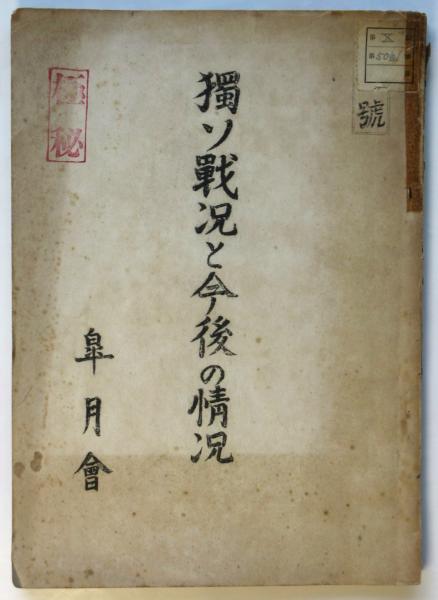 號
獨ソ戰況と今後の情況
皐月會
極秘